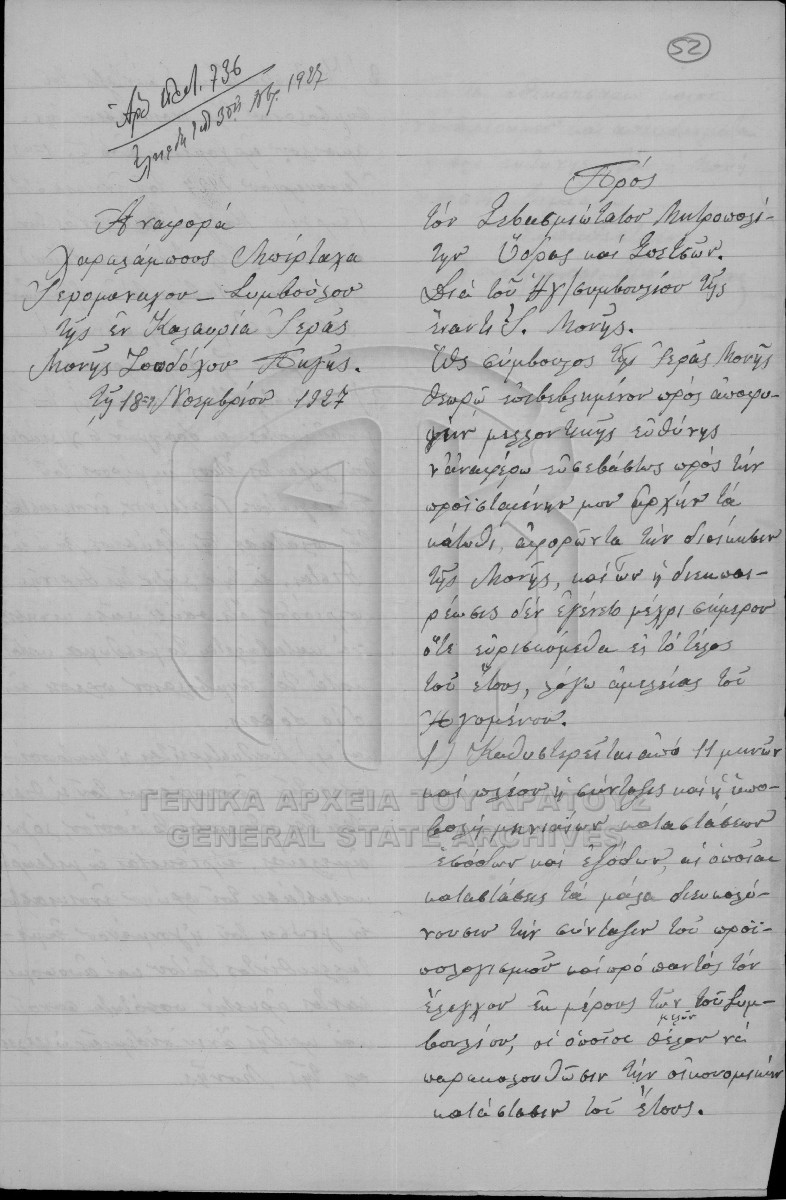 52
Ἀρ. Πρωτ. 736
Ἐλήφθη τῇ 30ῇ Νβρ. 1927
Ἀναφορά
Χαραλάμπους Μπίρταχα
Ἱερομονάχου – Συμβούλου
τῆς ἐν Καλαυρίᾳ Ἱερᾶς
Μονῆς Ζωοδόχου Πηγῆς.
τῇ 18ῃ/Νοεμβρίου 1927
Πρός
τόν Σεβασμιώτατον Μητροπολί-
την Ὕδρας καί Σπετσῶν.
Διά τοῦ Ἡγ/συμβουλίου τῆς
ἔναντι Ἱ. Μονῆς.
Ὡς σύμβουλος τῆς Ἱερᾶς Μονῆς
θεωρῶ ἐπιβεβλημένον πρός ἀποφυ-
γήν μελλοντικῆς εὐθύνης
ν' ἀναφέρω εὐσεβάστως πρός τήν
προϊσταμένην μου Ἀρχήν τά
κάτωθι, ἀφορῶντα τήν διοίκησιν
τῆς Μονῆς, καί ὧν ἡ διεκπε-
ρέωσις δέν ἐγένετο μέχρι σήμερον
ὅτε εὑρισκόμεθα εἰς τό τέλος
τοῦ ἔτους, λόγῳ ἀμελείας τοῦ
Ἡγουμένου.
1) Καθυστερεῖται ἀπό 11 μηνῶν
καί πλέον ἡ σύνταξις καί ἡ ὑπο-
βολή μηνιαίων καταστάσεων
ἐσόδων καί ἐξόδων, αἱ ὁποῖαι
καταστάσεις τά μάλα διευκολύ-
νουσιν τήν σύνταξιν τοῦ προϋ-
πολογισμοῦ καί πρό παντός τόν
ἔλεγχον ἐκ μέρους τῶν μελῶν τοῦ Συμ-
βουλίου, οἱ ὁποῖοι θέλον νά
παρακολουθῶσιν τήν οἰκονομικήν
κατάστασιν τοῦ ἔτους.
ΓΕΝΙΚΑ ΑΡΧΕΙΑ ΤΟΥ ΚΡΑΤΟΥΣ
GENERAL STATE ARCHIVES